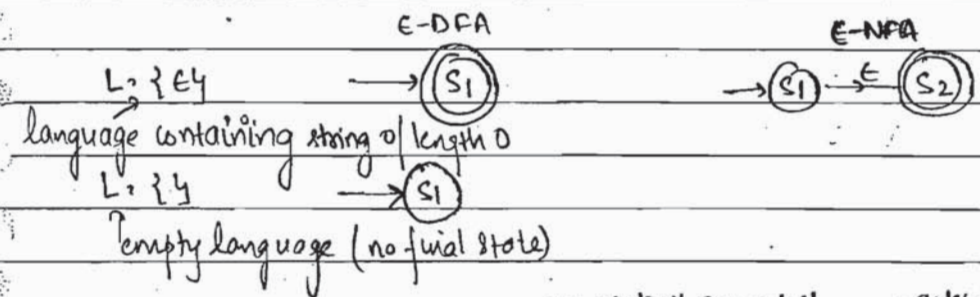 ϵ-DFA ϵ-NFA
L = {ϵ} S1 S1 ϵ S2
language containing string of length 0
L = { } S1
empty language (no final state)